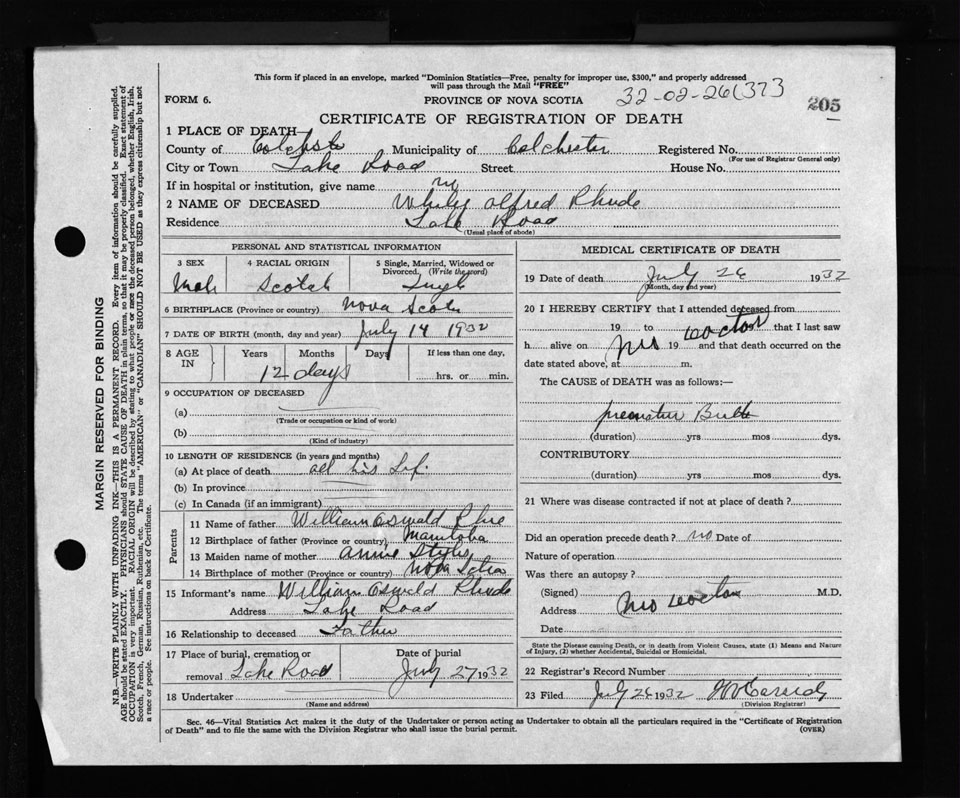 This form if placed in an envelope, marked "Dominion Statistics—Free, penalty for improper use, $300," and properly addressed
will pass through the Mail "FREE"
FORM 6.
PROVINCE OF NOVA SCOTIA
32-02-26(373
205
CERTIFICATE OF REGISTRATION OF DEATH
1 PLACE OF DEATH—
County of Municipality of Colchester Registered No.
(For use of Registrar General only)
City or Town Lake Road Street House No.
If in hospital or institution, give name
2 NAME OF DECEASED Alfred Rhude
Residence Lake Road
(Usual place of abode)
PERSONAL AND STATISTICAL INFORMATION
3 SEX 4 RACIAL ORIGIN 5 Single, Married, Widowed or
Divorced. (Write the word)
Scotch
6 BIRTHPLACE (Province or country) Nova
7 DATE OF BIRTH (month, day and year) July 14 1932
8 AGE
IN
Years Months Days If less than one day,
12 days hrs. or min.
9 OCCUPATION OF DECEASED
(a)
(Trade or occupation or kind of work)
(b)
(Kind of industry)
10 LENGTH OF RESIDENCE (in years and months)
(a) At place of death all his
(b) In province
(c) In Canada (if an immigrant)
Parents
11 Name of father William Oswald
12 Birthplace of father (Province or country) Manitoba
13 Maiden name of mother Annie
14 Birthplace of mother (Province or country) Nova
15 Informant's name William Oswald Rhude
Address Lake Road
16 Relationship to deceased Father
17 Place of burial, cremation or Date of burial
removal Lake Road July 27 1932
18 Undertaker
(Name and address)
MEDICAL CERTIFICATE OF DEATH
19 Date of death July 26 1932
(Month, day and year)
20 I HEREBY CERTIFY that I attended deceased from
19 to that I last saw
h alive on 19 and that death occurred on the
date stated above, at m.
The CAUSE of DEATH was as follows:—
(duration) yrs mos dys.
CONTRIBUTORY
(duration) yrs mos dys.
21 Where was disease contracted if not at place of death?
Did an operation precede death? no Date of
Nature of operation
Was there an autopsy?
(Signed) M.D.
Address
Date
State the Disease causing Death, or in death from Violent Causes, state (1) Means and Nature
of Injury, (2) whether Accidental, Suicidal or Homicidal.
22 Registrar's Record Number
23 Filed July 26 1932
(Division Registrar)
Sec. 46—Vital Statistics Act makes it the duty of the Undertaker or person acting as Undertaker to obtain all the particulars required in the "Certificate of Registration
of Death" and to file the same with the Division Registrar who shall issue the burial permit.
(OVER)
MARGIN RESERVED FOR BINDING
N.B.—WRITE PLAINLY WITH UNFADING INK—THIS IS A PERMANENT RECORD. Every item of information should be carefully supplied.
AGE should be stated EXACTLY. PHYSICIANS should STATE CAUSE OF DEATH in plain terms, so that it may be properly classified. Exact statement of
OCCUPATION is very important. RACIAL ORIGIN will be described by stating to what people or race the deceased person belonged, whether English, Irish,
Scotch, French, German, Russian, Ruthenian, etc. The terms "AMERICAN" or "CANADIAN" SHOULD NOT BE USED as they express citizenship but not
a race or people. See instructions on back of Certificate.